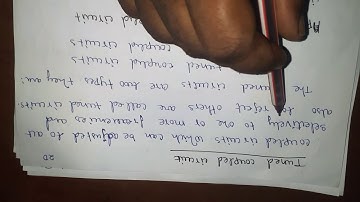 20
Tuned coupled circuit
coupled circuits which can be adjusted to act
selectively to one or more frequencies and
also to reject others are called tuned circuits
The tuned circuits are two types they are:
tuned coupled circuits
coupled circuits
circuit